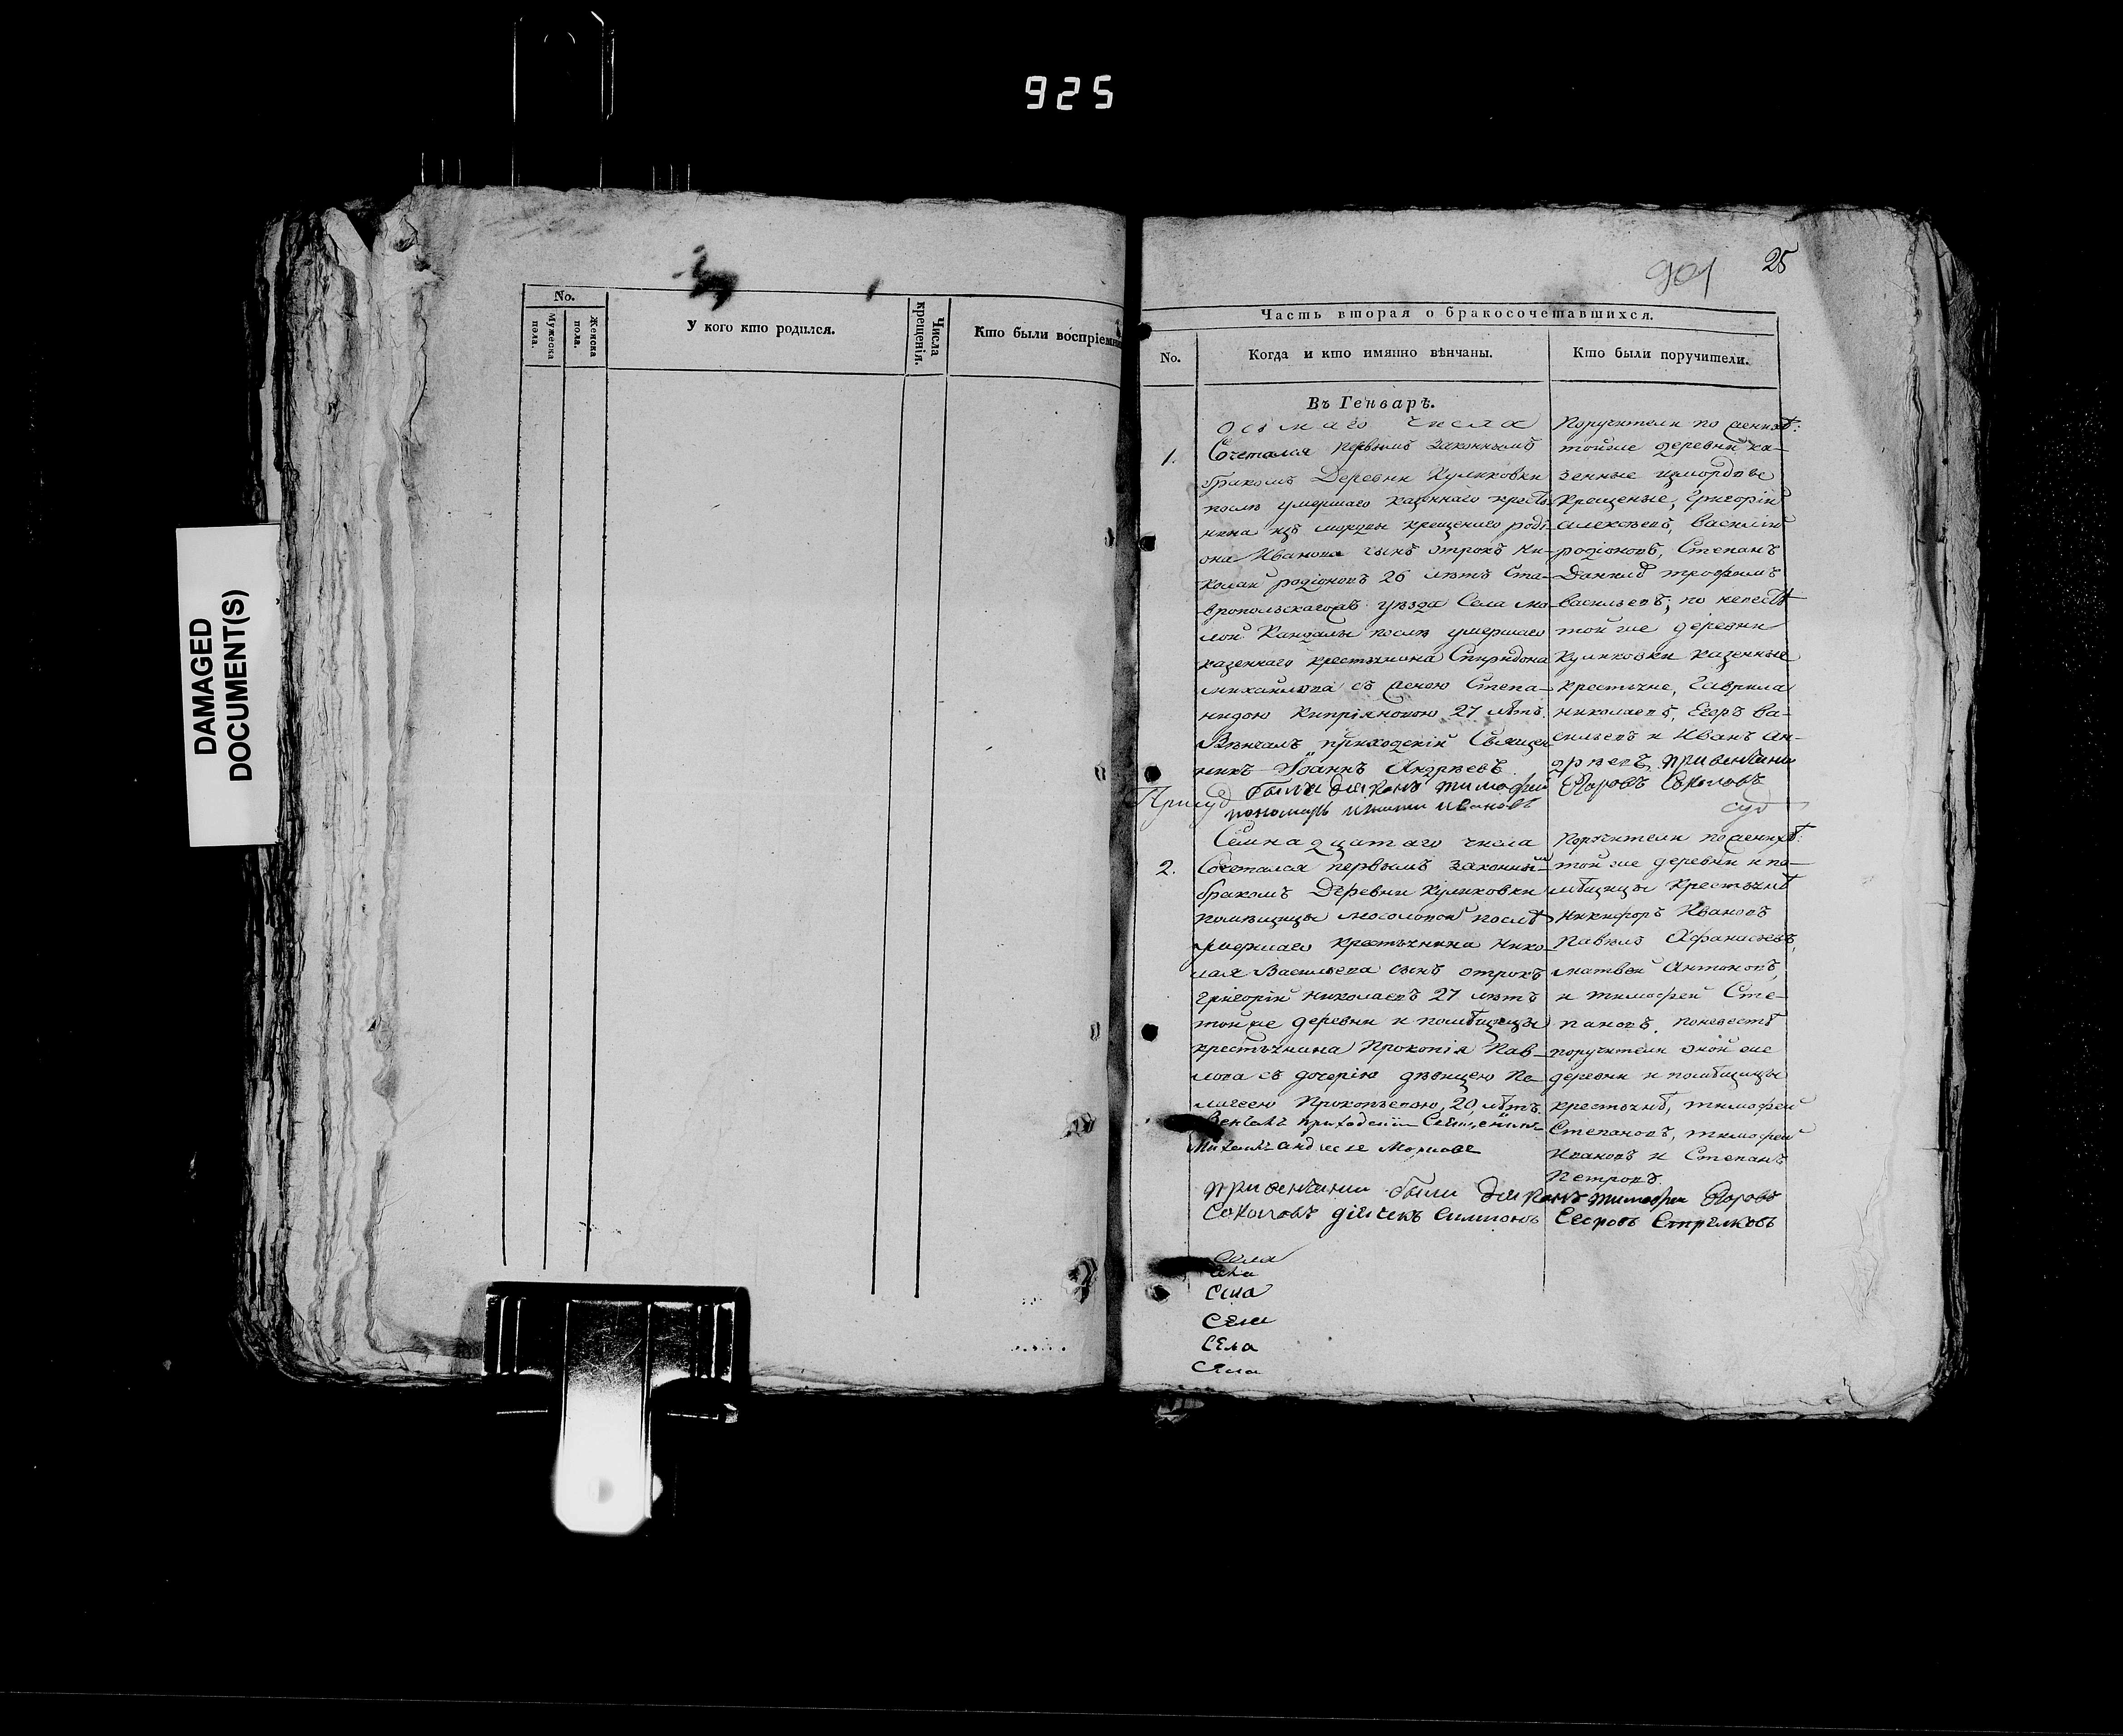 925
DAMAGED
DOCUMENT(S)
No.
Мужеска пола.
Женска пола.
У кого кто родился.
Числа крещенія.
Кто были воспріемни
901
25
Часть вторая о бракосочетавшихся.
No.
Когда и кто имянно вѣнчаны.
Кто были поручители.
Въ Генварѣ.
осьмаго числа
1.
Сочетался первымъ законнымъ
бракомъ Деревни Куликовки
послѣ умершаго казеннаго кресть
нина изъ мордвы крещенаго роді-
она Иванова сынъ отрокъ Ни-
колай родіоновъ 26 лѣтъ Ста-
вропольскаго уѣзда Села ма-
лой Кандалы послѣ умершаго
казеннаго крестьянина Спиридона
михайлова съ женою Степа-
нидою Кипріяновою 27 лѣтъ.
Вѣнчалъ приходскій Священ
никъ Іоаннъ Андрѣевъ
были діяконъ тимофей
пономарь Ивановъ
Поручители по женихѣ:
тойже деревни ка-
зенные измордвы
Крещеные, Григорій
алексѣевъ, Василій
родіоновъ, Степанъ
Данил трофимъ
васильевъ; по невестѣ
той же деревни
Куликовки казенные
крестьяне, Гаврила
николаевъ, Егоръ Ва-
сильевъ и Иванъ Ан-
дрѣевъ привенчани
Егоровъ Соколовъ
Семнадцатаго числа
2.
Сочетался первымъ законным
бракомъ Деревни Куликовки
помѣщицы мосоловой послѣ
умершаго крестьянина Нико-
лая Васильева сынъ отрокъ
григорій николаевъ 27 лѣтъ
тойже деревни и помѣщицы
крестьянина Прокопія Пав-
лова съ дочерію дѣвицею Пе-
лагеею Прокопьевою, 20 лѣтъ.
Венчалъ приходскій Священникъ
Поручители поженихѣ:
той же деревни и по-
мѣщицы крестьянѣ
Никифоръ Ивановъ
Павелъ Афанасьевъ,
матвей Антоновъ,
и тимофей Сте-
пановъ. поневестѣ
поручители оной же
деревни и помѣщицы
крестьянѣ, тимофей
Степановъ, тимофей
Ивановъ и Степанъ
Петровъ.
привенчании были діяконъ тимофеи Егоровъ
Соколовъ дьячекъ Симионъ Егоровъ Стрелковъ
Села
Села
Села
Села
Села